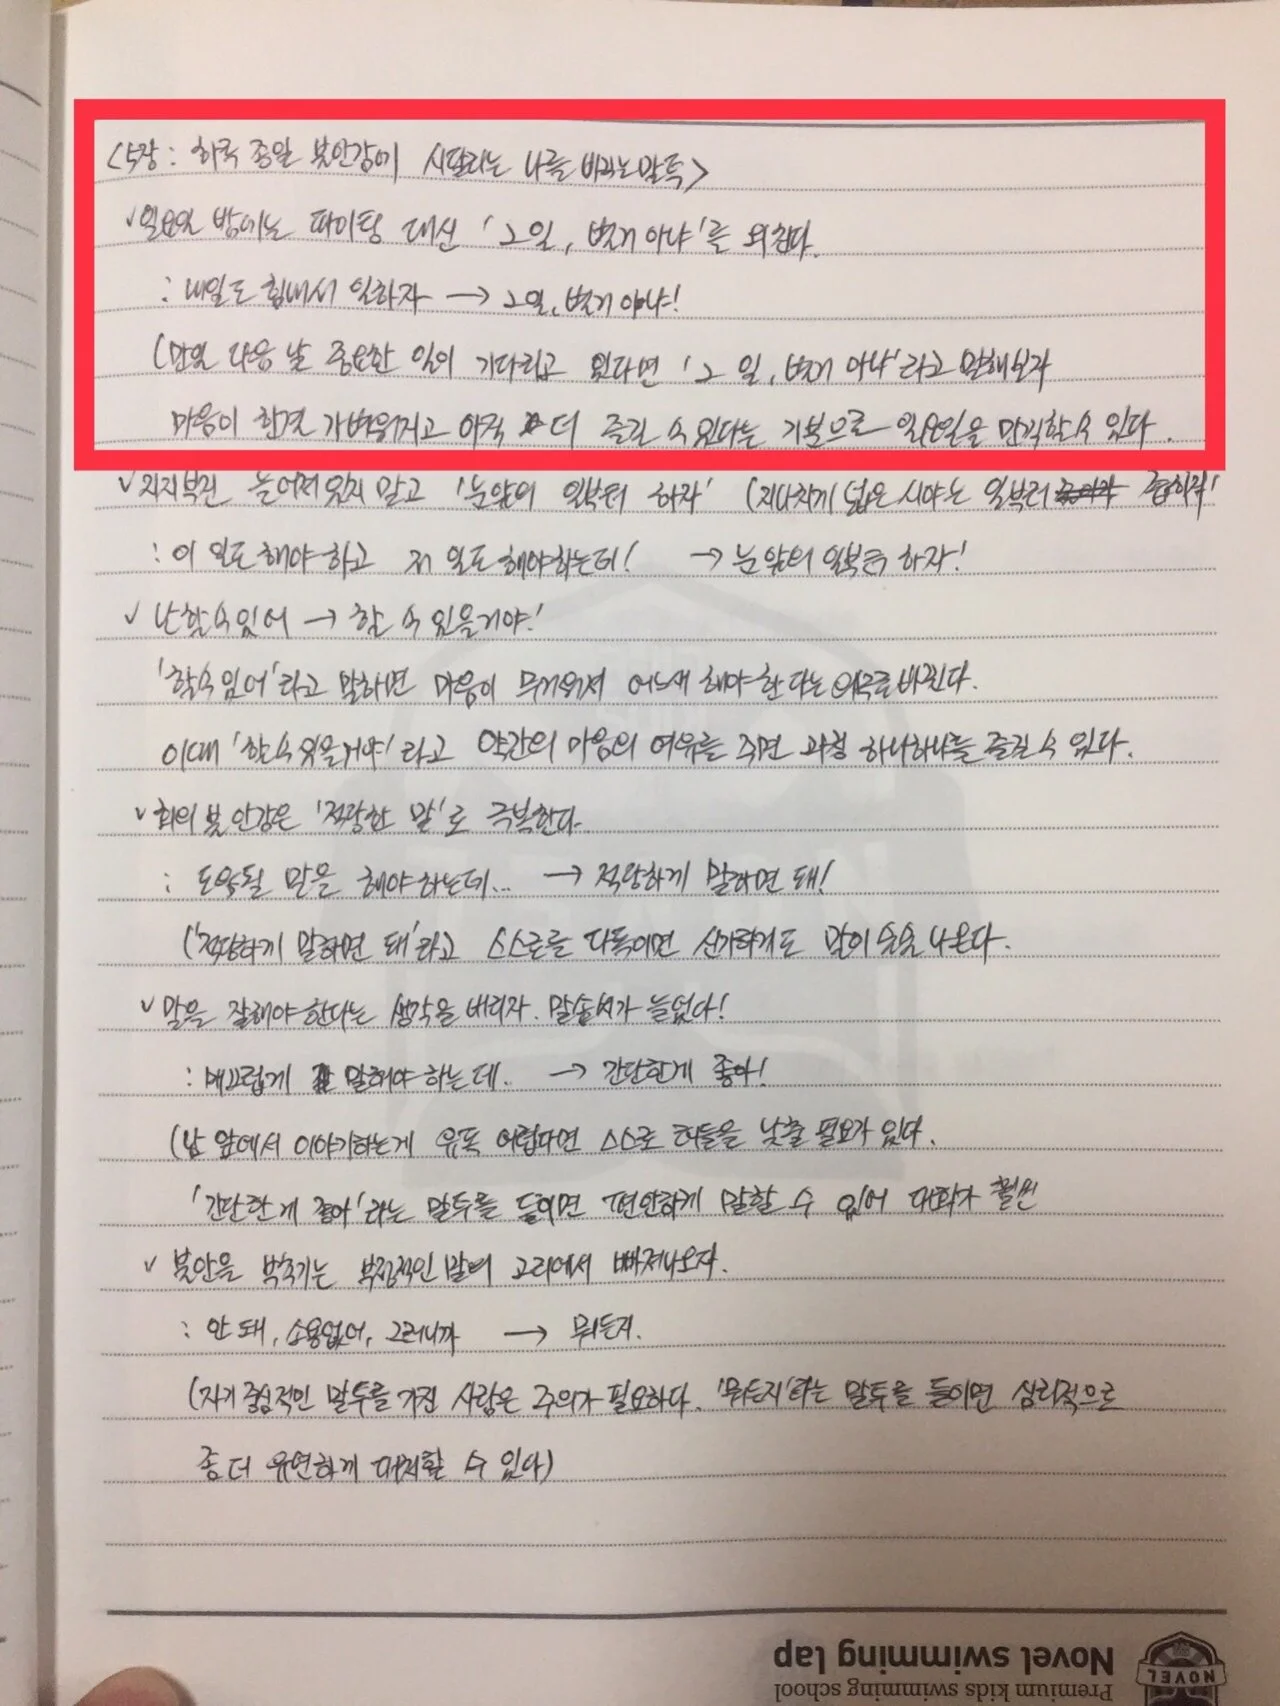 <5장 : 하루 종일 불안감에 시달리는 나를 바꾸는 말투>
✓일요일 밤에는 파이팅 대신 '그 일, 별거 아냐'를 외친다.
: 내일도 힘내서 일하자 → 그 일, 별거 아냐!
(만일 다음 날 중요한 일이 기다리고 있다면 '그 일, 별거 아냐'라고 말해보자
마음이 한결 가벼워지고 아직 더 즐길 수 있다는 기분으로 일요일을 만끽할 수 있다.
✓지지부진 늘어져 있지 말고 '눈앞의 일부터 하자' (지나치게 넓은 시야는 일부러 좁히자!
: 이 일도 해야 하고 저 일도 해야하는데! → 눈 앞의 일부터 하자!
✓ 난 할 수 있어 → 할 수 있을거야!
'할 수 있어'라고 말하면 마음이 무거워져 어느새 해야 한다는 의무로 바뀐다.
이때 '할 수 있을거야'라고 약간의 마음의 여유를 주면 과정 하나하나를 즐길 수 있다.
✓회의 불안감은 '적당한 말'로 극복한다.
: 도움될 말을 해야 하는데... → 적당하게 말하면 돼!
('적당하게 말하면 돼'라고 스스로를 다독이면 신기하게도 말이 술술 나온다.
✓말을 잘해야 한다는 생각을 버리자. 말솜씨가 늘었다!
: 매끄럽게 말해야 하는데.. → 간단한게 좋아!
(남 앞에서 이야기하는게 유독 어렵다면 스스로 허들을 낮출 필요가 있다.
'간단한 게 좋아'라는 말투를 들이면 편안하게 말할 수 있어 대화가 훨씬
✓ 불안을 부추기는 부정적인 말의 고리에서 빠져나오자.
: 안 돼, 소용없어, 그러니까 → 뭐든지.
(자기 중심적인 말투를 가진 사람은 주의가 필요하다. '뭐든지'라는 말투를 들이면 심리적으로
좀 더 유연하게 대처할 수 있다)
Novel swimming lap
Premium kids swimming school
NOVEL